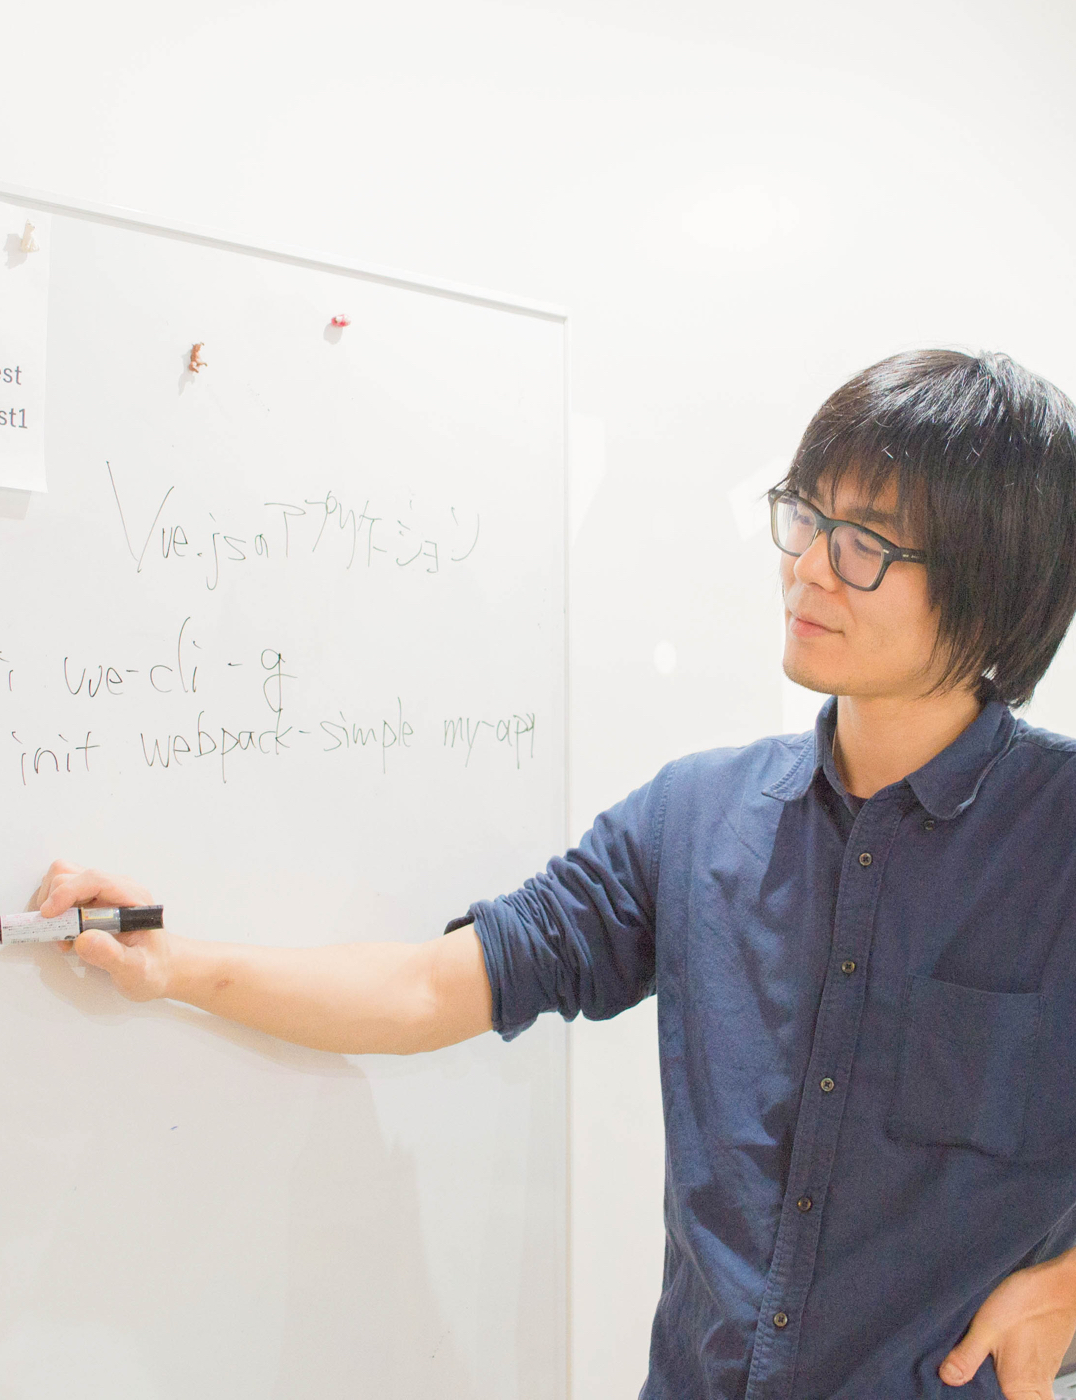 est
st1
Vue.jsのアプリケーション
i vue-cli -g
init webpack-simple my-app